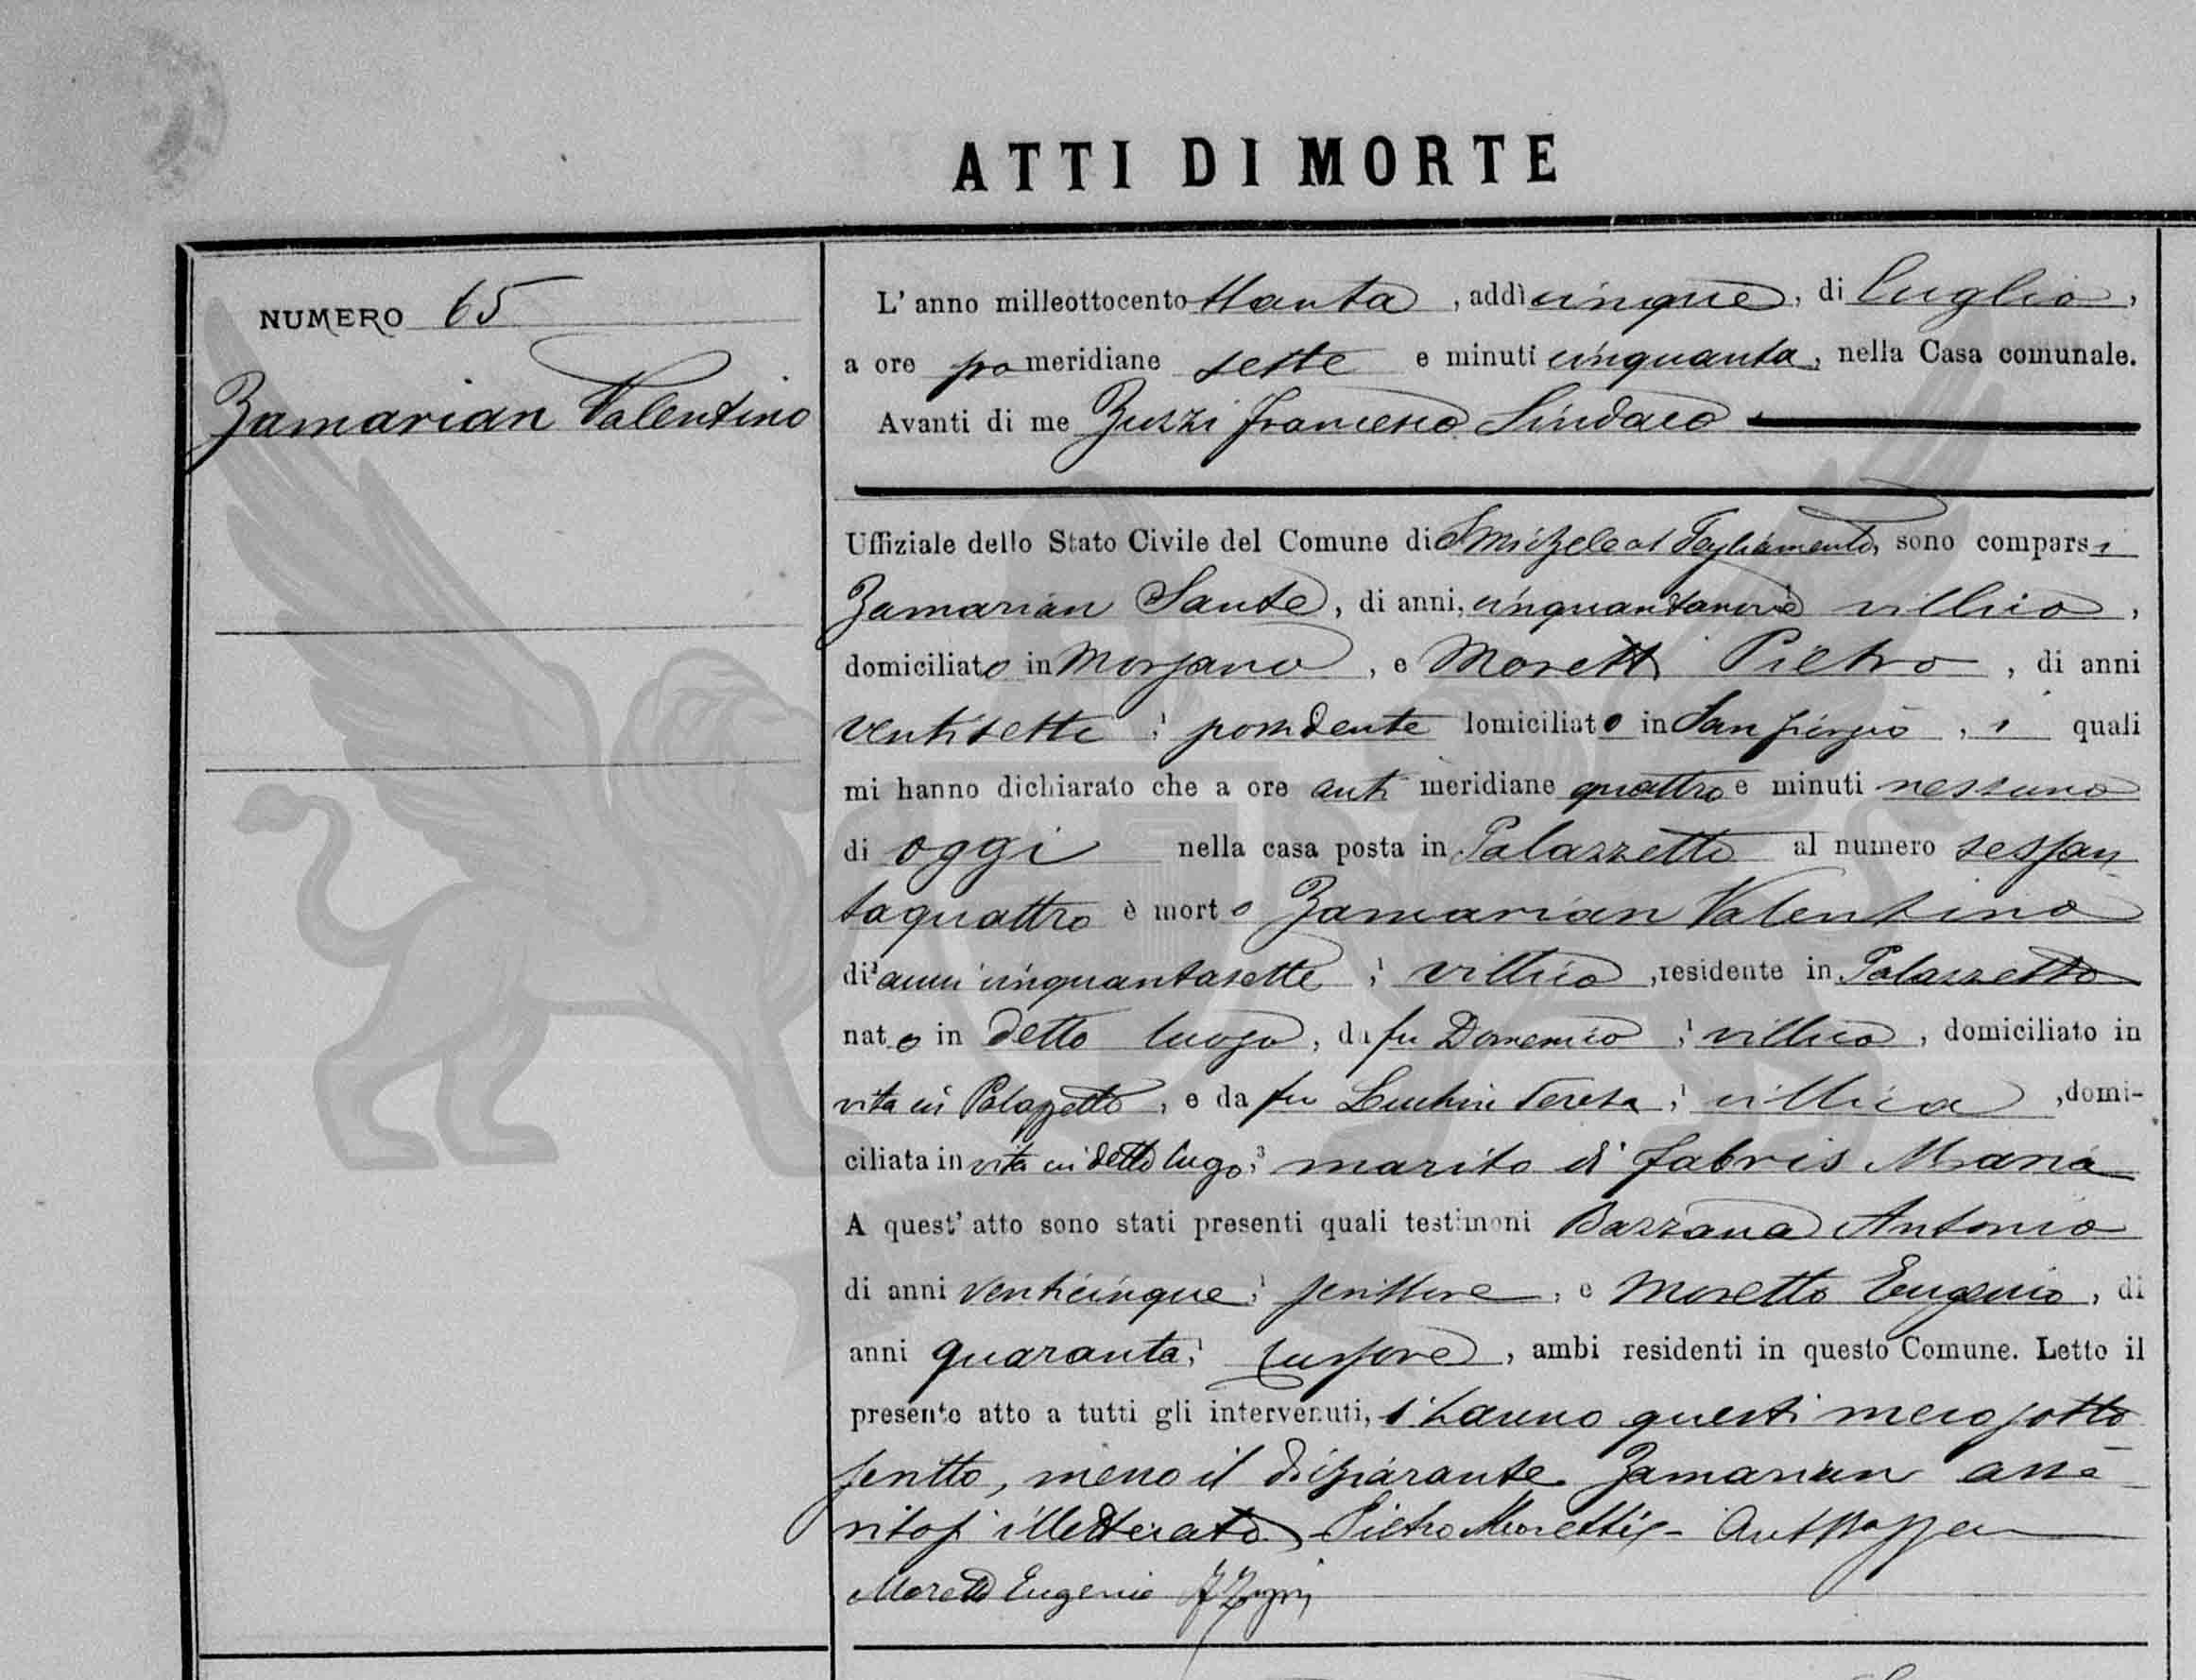 ATTI DI MORTE
NUMERO 65
Zamarian Valentino
L' anno milleottocento ttanta, addì cinque, di Luglio,
a ore po meridiane sette e minuti cinquanta, nella Casa comunale.
Avanti di me Zuzzi Francesco Sindaco
Uffiziale dello Stato Civile del Comune di S Michele al Tagliamento, sono comparsi
Zamarian Sante, di anni, cinquantanove villico,
domiciliato in Morsano, e Moretti Pietro, di anni
ventisette, possidente domiciliato in San Giorgio, i quali
mi hanno dichiarato che a ore anti meridiane quattro e minuti nessuno
di oggi nella casa posta in Palazzetto al numero sessan
taquattro è morto Zamarian Valentino
di anni cinquantasette, villico, residente in Palazzetto
nato in detto luogo, da fu Domenico, villico, domiciliato in
vita in Palazzetto, e da fu Teresa, villica, domi-
ciliata in vita in detto lugo, marito di Fabris Maria
A quest' atto sono stati presenti quali testimoni Bazzana Antonio
di anni venticinque, scrittore, e Moretto Eugenio, di
anni quaranta, cursore, ambi residenti in questo Comune. Letto il
presente atto a tutti gli intervenuti, l'hanno questi meco sotto
scritto, meno il dichiarante Zamarian asse
ritosi illetterato Pietro Moretti - Ant
Moretto Eugenio F Zuzzi